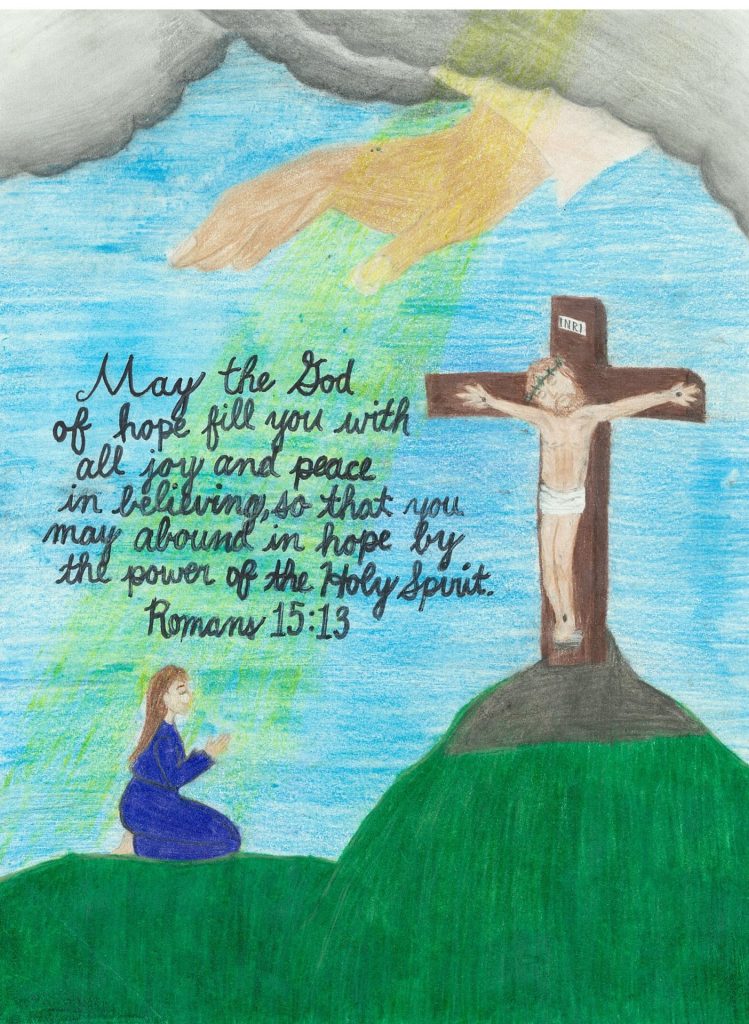 INRI
May the God
of hope fill you with
all joy and peace
in believing, so that you
may abound in hope by
the power of the Holy Spirit.
Romans 15:13